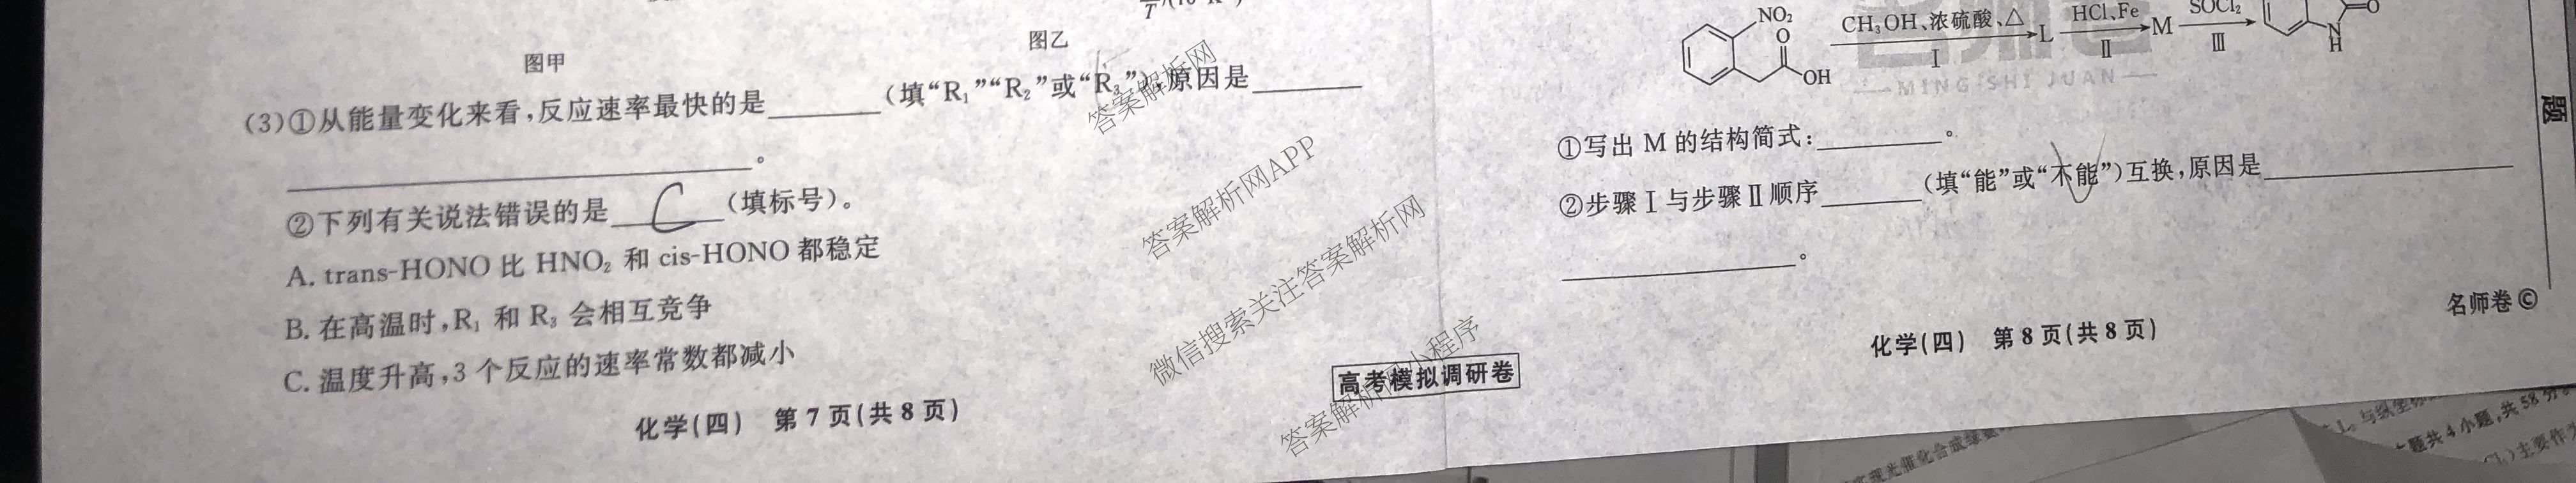 图甲
图乙
(3)①从能量变化来看,反应速率最快的是________(填“R₁”“R₂”或“R₃”),原因是________
________。
②下列有关说法错误的是 C (填标号)。
A. trans-HONO 比 HNO₂ 和 cis-HONO 都稳定
B. 在高温时,R₁ 和 R₃ 会相互竞争
C. 温度升高,3 个反应的速率常数都减小
化学(四) 第 7 页(共 8 页)
NO₂
O
OH
CH₃OH、浓硫酸、△
Ⅰ
L
HCl、Fe
Ⅱ
M
SOCl₂
Ⅲ
O
N
H
MING SHI JUAN
①写出 M 的结构简式:________。
②步骤Ⅰ与步骤Ⅱ顺序________(填“能”或“不能”)互换,原因是________
________。
名师卷©
化学(四) 第 8 页(共 8 页)
高考模拟调研卷
题
答案解析网
答案解析网APP
微信搜索关注答案解析网
答案解析网小程序